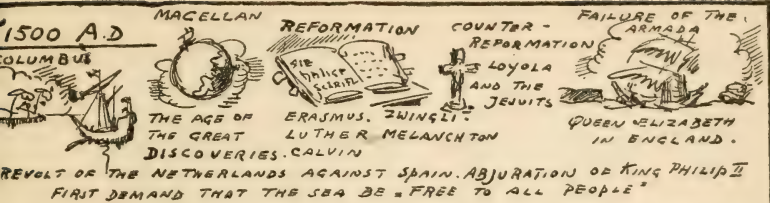 1500 A.D
COLUMBUS
MAGELLAN
THE AGE OF
THE GREAT
DISCOVERIES.
REFORMATION
DIE
HEILIGE
SCHRIFT
ERASMUS. ZWINGLI
LUTHER MELANCHTON
CALVIN
COUNTER-
REFORMATION
LOYOLA
AND THE
JESUITS
FAILURE OF THE
ARMADA
QUEEN ELIZABETH
IN ENGLAND.
REVOLT OF THE NETHERLANDS AGAINST SPAIN. ABJURATION OF KING PHILIP II
FIRST DEMAND THAT THE SEA BE "FREE TO ALL PEOPLE"